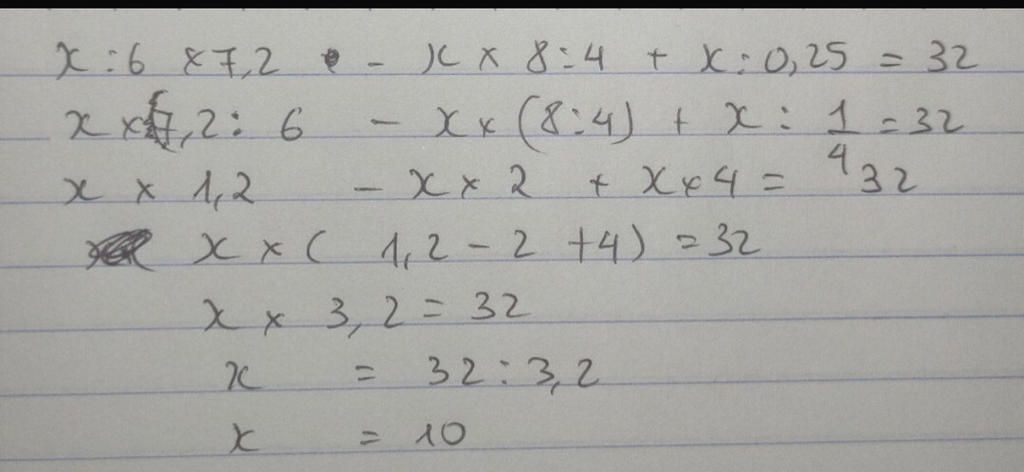 x : 6 × 7,2 - x × 8 : 4 + x : 0,25 = 32
x × 7,2 : 6 - x × (8 : 4) + x : 1/4 = 32
x × 1,2 - x × 2 + x × 4 = 32
x × ( 1,2 - 2 + 4) = 32
x × 3,2 = 32
x = 32 : 3,2
x = 10